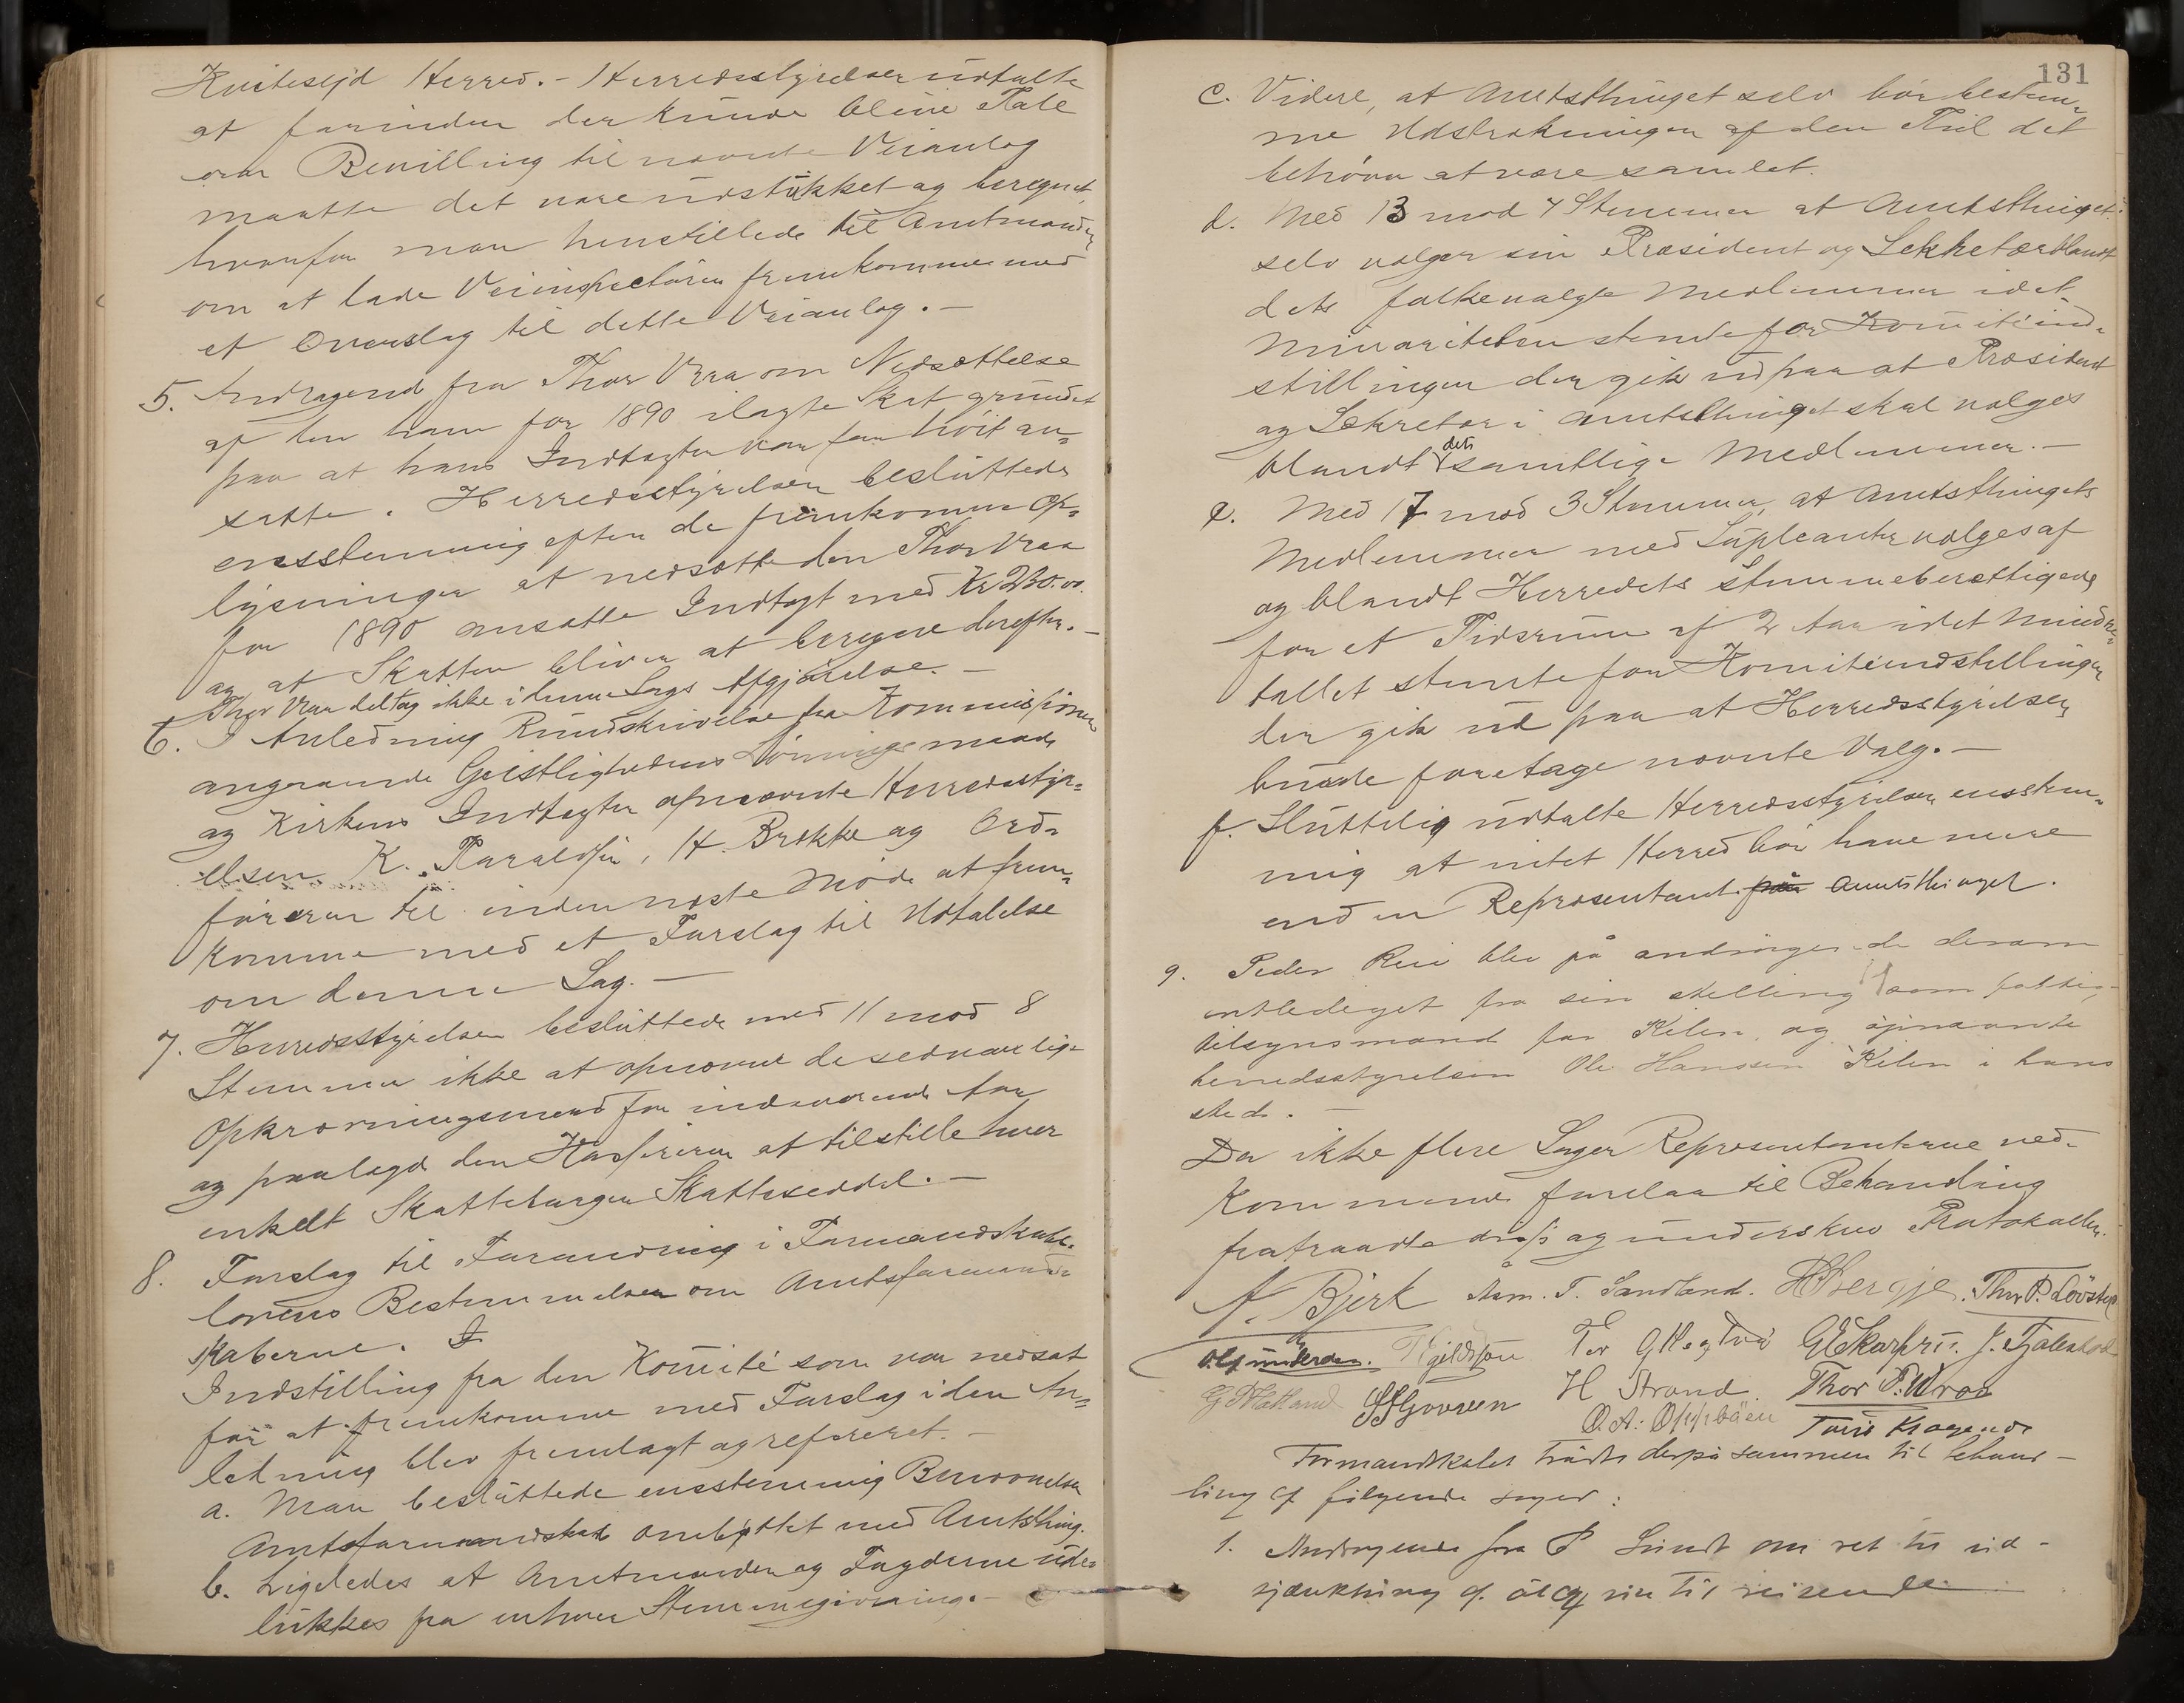 Kvitesejd Herred. - Herredsstyrelsen udtalte
at forinden der kunde blive Tale
om Bevilling til nævnte Veianlæg
maatte det være udstukket og beregnet,
hvorfor man henstillede til Amtmanden
om at lade Veiinspectøren fremkomme med
et Overslag til dette Veianlæg. -
5. Andragende fra Thor Vraa om Nedsættelse
af den ham for 1890 ilagte Skat grundet
paa at hans Indtægter var for høit an-
satte. Herredsstyrelsen besluttede
ensstemmig efter de fremkomne Op-
lysninger at nedsætte den Thor Vraa
for 1890 ansatte Indtægt med Kr 230.00.
og at Skatten bliver at beregne derefter. -
Thor Vraa deltog ikke i denne Sags Afgjørelse. -
6. I Anledning Rundskrivelse fra Kommissionen
angaaende Geistlighedens Lønningsmaade
og Kirkens Indtægter opnævnte Herredssty-
relsen K. Taraldsen, H. Brekke og Ord-
føreren til inden næste Møde at frem-
komme med et Forslag til Udtalelse
om denne Sag. -
7. Herredsstyrelsen besluttede med 11 mod 8
Stemmer ikke at opnævne de sedvanlige
Opkrævningsmænd for indeværende Aar
og paalagde den Kasserer at tilstille hver
enkelt Skatteborger Skatteseddel. -
8. Forslag til Forandring i Formandskabs-
lovens Bestemmelser om Amtsformand-
skaberne.
Indstilling fra den Komité som var nedsat
for at fremkomme med Forslag i den An-
ledning blev fremlagt og refereret. -
a. Man besluttede ensstemmig Benævnelsen
Amtsformandskab ombyttet med Amtsthing.
b. Ligeledes at Amtmanden og Fogderne ude-
lukkes fra enhver Stemmegivning. -
131
c. Videre, at Amtsthinget selv bør bestem-
me Udstrækningen af den Tid det
behøver at være samlet.
d. Med 13 mod 7 Stemmer at Amtsthinget
selv vælger sin Præsident og Sekretær blandt
dets folkevalgte Medlemmer idet
Minoriteten stemte for Komitéind-
stillingen der gik ud paa at Præsident
og Sekretær i Amtsthinget skal vælges
blandt dets samtlige Medlemmer. -
e. Med 17 mod 3 Stemmer, at Amtsthingets
Medlemmer med Supleanter vælges af
og blandt Herredets stemmeberettigede
for et Tidsrum af 2 Aar idet Mindre-
tallet stemte for Komitéindstillingen
der gik ud paa at Herredsstyrelsen
burde foretage nævnte Valg. -
f. Sluttelig udtalte Herredsstyrelsen ensstem-
mig at intet Herred bør have mere
end en Repræsentant paa Amtsthinget.
9. Peder Rui blev på andragende derom
entlediget fra sin stilling som fattig-
tilsynsmand for Kilen og opnævnte
herredsstyrelsen Ole Hanssen Kilen i hans
sted. -
Da ikke flere Sager Repræsentanterne ved-
kommende forelaa til Behandling
fratraadte disse og underskrev Protokollen.
N. Bjerk Aasm. T. Sandland. H Berge. Thor P. Løvstuel
Olaf T Egildsøn Tor G Høgtvei G E Skarprud. J. Fjalestad
G Hatland S S Govreen H Strand. Thor P. Vraa
O. A. Oppebøen Tovis Kragende
Formandskabet trådte derpå sammen til behand-
ling af følgende sager:
1. Andragende fra P Sundt om ret til ud-
sjænkning af øl og vin til reisende